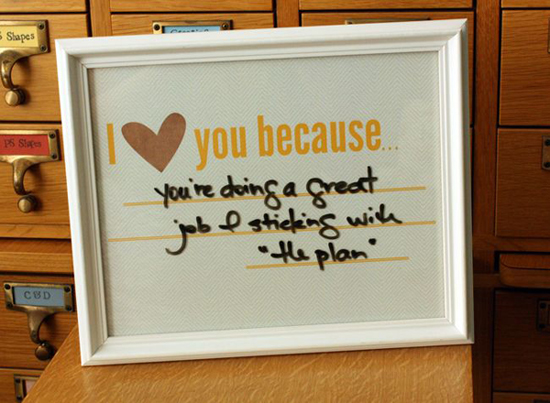 S Shapes
PS Shapes
C & D
I ♥ you because...
you're doing a great
job & sticking with
"the plan"